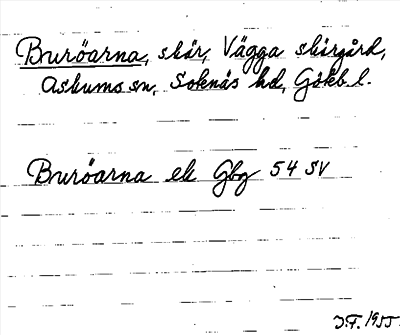 Buröarna, skär, Vägga skärgård,
Askums sn, Sotenäs hd, Göteb. l.
Buröarna ek Gbg 54 SV
J.F. 1955